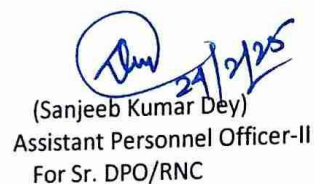 24/2/25
(Sanjeeb Kumar Dey)
Assistant Personnel Officer-II
For Sr. DPO/RNC